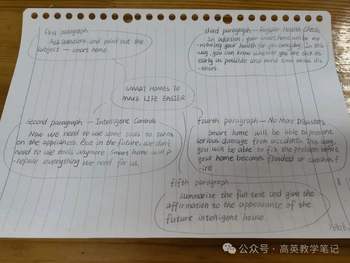 first paragraph
Ask questions and point out the
subject — smart home
SMART HOMES TO
MAKE LIFE EASIER
third paragraph — Regular Health Checks
In addition, your smart home will be mo-
nitoring your health for you everyday. In this
way, you can know whether you are sick as
early as possible and
second paragraph — Intelligent Controls
Now we need to use some tools to turn
on the appliances. But in the future, we don't
need to use tools anymore. Smart home will p-
repare everything we need for us.
fourth paragraph — No More Disasters
Smart home will be able to prevent
serious damage from accidents. This way,
you will be able to fix the problem before
your home becomes flooded or catches f-
ire.
fifth paragraph
summarize the full text and give the
affirmation to the appearance of the
future intelligent house.
公众号·高英教学笔记